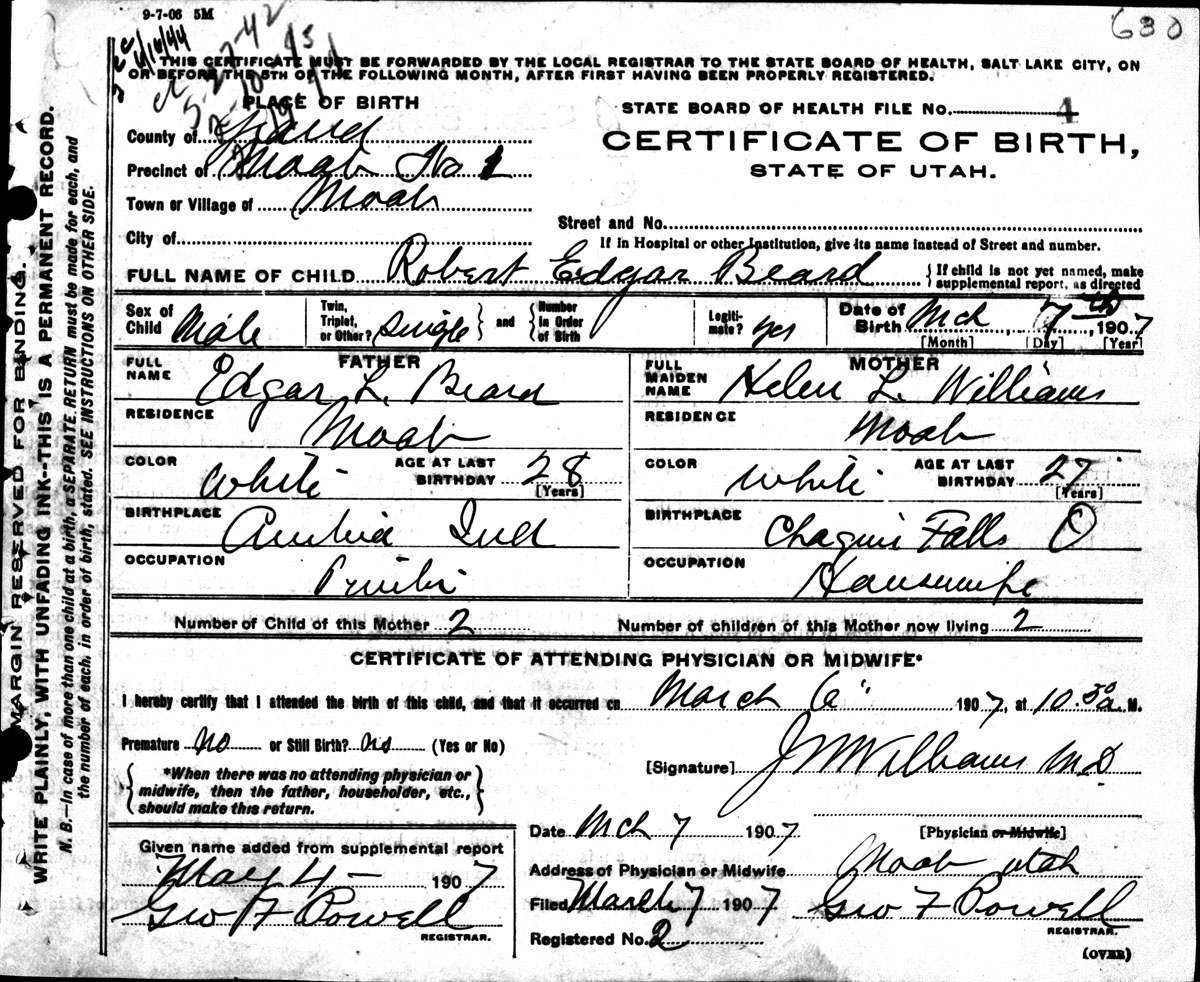 9-7-06 5M
630
6/16/44
5-27-42
THIS CERTIFICATE MUST BE FORWARDED BY THE LOCAL REGISTRAR TO THE STATE BOARD OF HEALTH, SALT LAKE CITY, ON
OR BEFORE THE 5TH OF THE FOLLOWING MONTH, AFTER FIRST HAVING BEEN PROPERLY REGISTERED.
PLACE OF BIRTH
STATE BOARD OF HEALTH FILE No. 4
County of Grand
CERTIFICATE OF BIRTH,
Precinct of Moab No 1
STATE OF UTAH.
Town or Village of Moab
Street and No.
City of
If in Hospital or other Institution, give its name instead of Street and number.
FULL NAME OF CHILD Robert Edgar Beard { If child is not yet named, make
supplemental report, as directed
Sex of Child Male
Twin, Triplet, or Other? single } and { Number In Order of Birth
Legiti- mate? yes
Date of Birth Mch, 7th, 1907
[Month] [Day] [Year]
FATHER
FULL NAME Edgar L. Beard
MOTHER
FULL MAIDEN NAME Helen L. Williams
RESIDENCE Moab
RESIDENCE Moab
COLOR White AGE AT LAST BIRTHDAY 28 [Years]
COLOR White AGE AT LAST BIRTHDAY 27 [Years]
BIRTHPLACE Ind
BIRTHPLACE Chagrin Falls O
OCCUPATION
OCCUPATION Housewife
Number of Child of this Mother 2
Number of children of this Mother now living 2
CERTIFICATE OF ATTENDING PHYSICIAN OR MIDWIFE*
I hereby certify that I attended the birth of this child, and that it occurred on March 6" 1907, at 10.30 a. M.
Premature no or Still Birth? no (Yes or No)
[Signature] J W Williams M D
{ *When there was no attending physician or
midwife, then the father, householder, etc.,
should make this return. }
Date Mch 7 1907 [Physician or Midwife]
Given name added from supplemental report
May 4 — 1907
Geo F Powell
REGISTRAR.
Address of Physician or Midwife Moab Utah
Filed March 7 1907 Geo F Powell
REGISTRAR.
Registered No. 2
(OVER)
MARGIN RESERVED FOR BINDING.
WRITE PLAINLY, WITH UNFADING INK--THIS IS A PERMANENT RECORD.
N. B.—In case of more than one child at a birth, a SEPARATE RETURN must be made for each, and
the number of each, in order of birth, stated. SEE INSTRUCTIONS ON OTHER SIDE.